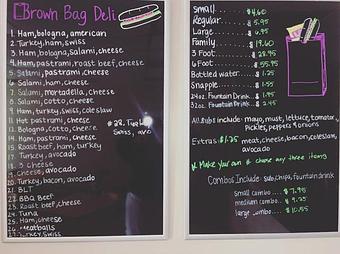 Brown Bag Deli
1. Ham, bologna, american
2. Turkey, ham, swiss
3. Ham, bologna, salami, cheese
4. Ham, pastrami, roast beef, cheese
5. Salami, pastrami, cheese
6. Salami, ham, cheese
7. Salami, mortadella, cheese
8. Salami, cotto, cheese
9. Ham, turkey, swiss, coleslaw
11. Hot pastrami, cheese
12. Bologna, cotto, cheese
14. Ham, pastrami, cheese
15. Roast beef, ham, turkey
17. Turkey, avocado
18. 3 Cheese
19. Cheese, avocado
20. Turkey, bacon, avocado
21. BLT
22. BBQ Beef
23. Roast beef, cheese
24. Tuna
25. Ham, cheese
26. Meatballs
27. Turkey, swiss
#28. Turkey
Swiss,
Small..... $4.60
Regular..... $5.95
Large..... $6.95
Family..... $19.60
3 Foot..... $28.95
6 Foot..... $55.95
Bottled water... $1.25
Snapple..... $1.55
24oz. Fountain Drink... $1.95
32oz. Fountain Drink... $2.45
All Subs include: mayo, must, lettuce, tomato,
Pickles, peppers & onions
Extras: $1.75 meat, cheese, bacon, coleslaw,
avocado
* Make your own & choose any three items
Combos Include: sub, chips, fountain drink
small combo.... $7.95
medium combo.. $9.25
large combo.... $10.55